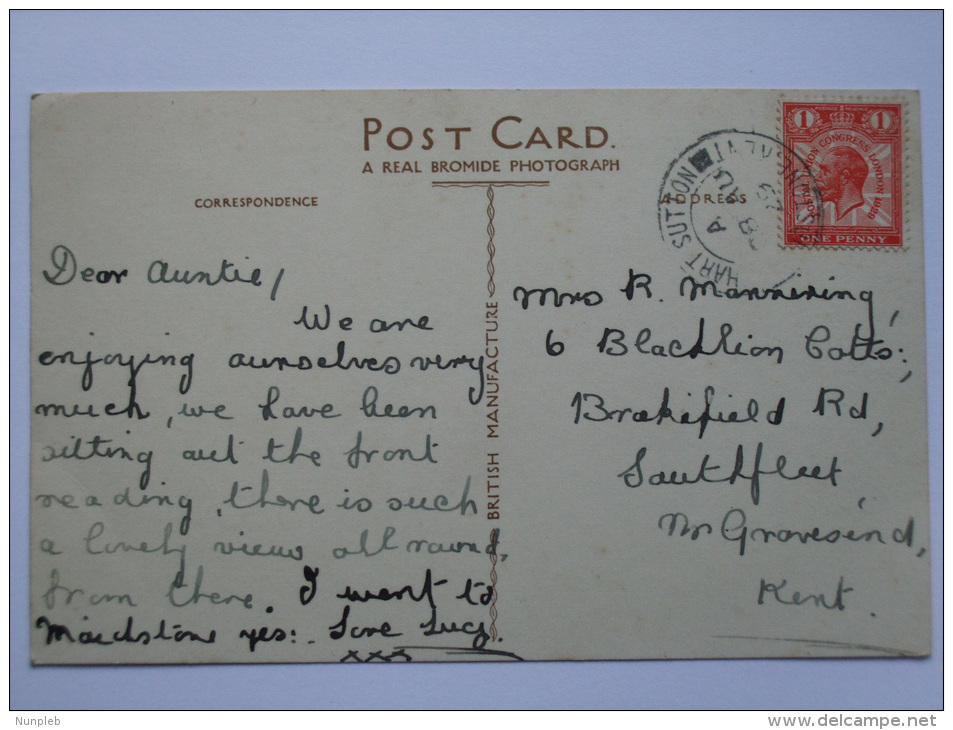 POST CARD.
A REAL BROMIDE PHOTOGRAPH
CORRESPONDENCE
ADDRESS
BRITISH MANUFACTURE
1 1
POSTAL UNION CONGRESS LONDON 1929
ONE PENNY
HART SUTTON
Dear Auntie,
We are
enjoying ourselves very
much, we have been
sitting out the front
reading, there is such
a lovely view all round,
from there. I went to
Maidstone yes:. Love Lucy.
xxx
Mrs R. Mannering,
6 Blacklion Cotts:,
Brakefield Rd,
Southfleet,
Nr Gravesend,
Kent.
Nunpleb
www.delcampe.net